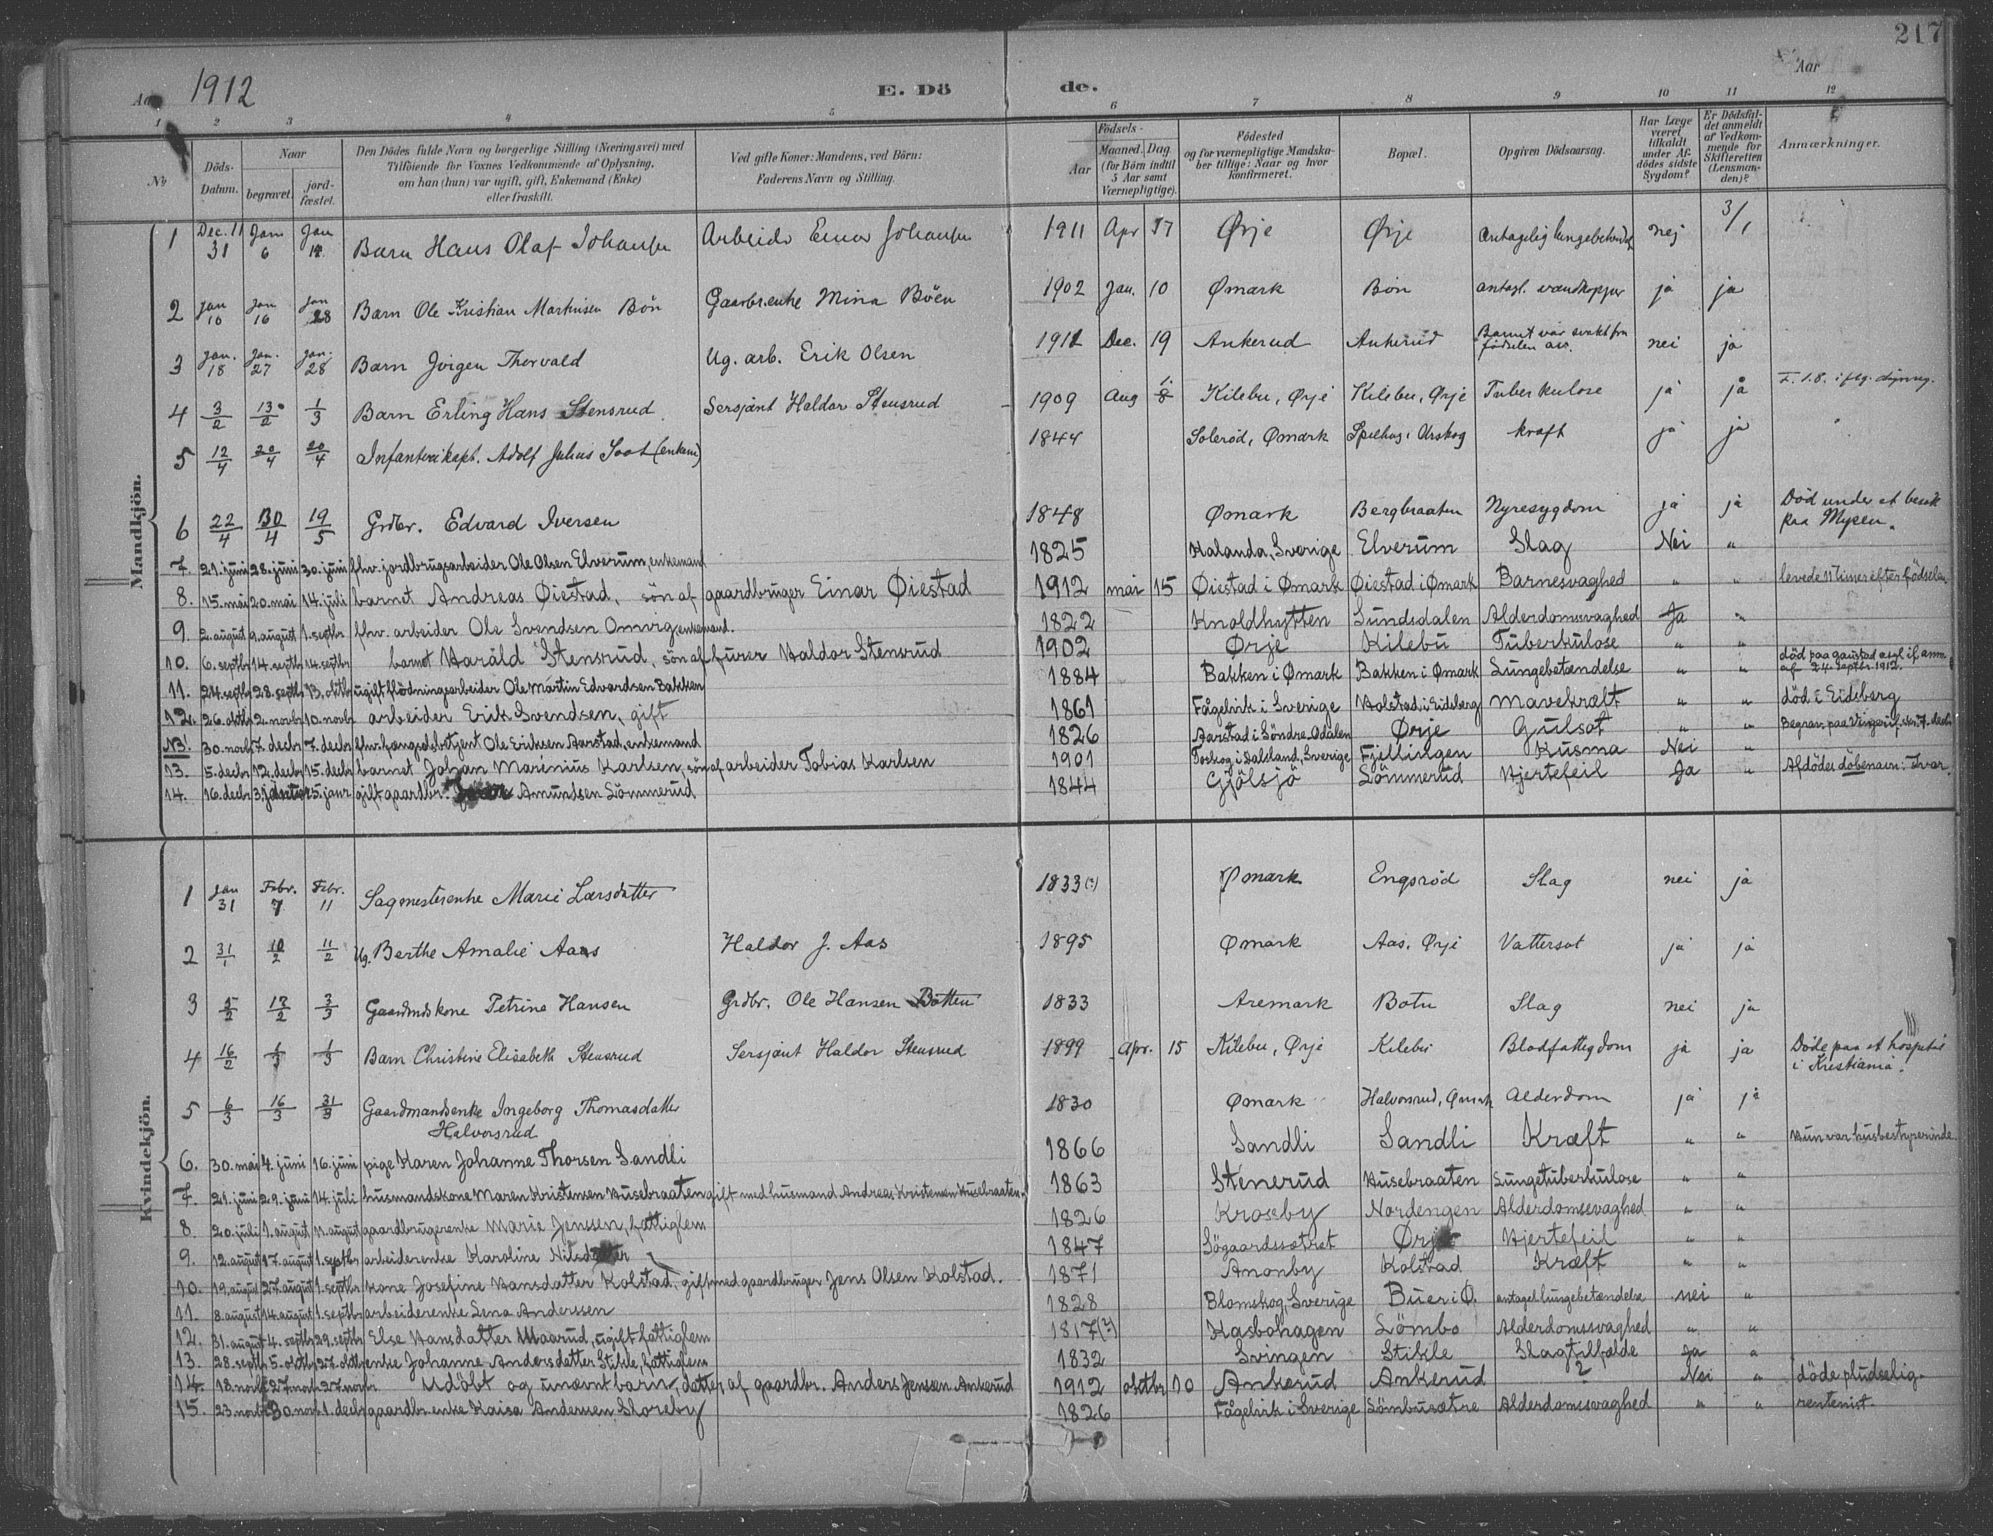 217
Aar 1912 E. Döde. Aar
1 2 3 4 5 6 7 8 9 10 11 12
No
Döds-Datum.
Naar
begravet.
jordfæstet.
Den Dödes fulde Navn og borgerlige Stilling (Næringsvei) med
Tilföiende for Voxnes Vedkommende af Oplysning,
om han (hun) var ugift, gift, Enkemand (Enke)
eller fraskilt.
Ved gifte Koner: Mandens, ved Börn:
Faderens Navn og Stilling.
Födsels-
Aar
Maaned. Dag.
(for Börn indtil
5 Aar samt
Værnepligtige).
Födested
og for værnepligtige Mandskaber tillige: Naar og hvor
Konfirmeret.
Bopæl.
Opgiven Dödsaarsag.
Har Læge
været
tilkaldt
under Afdödes sidste
Sygdom?
Er Dödsfaldet anmeldt
af Vedkommende for
Skifteretten
(Lensmanden)?
Anmærkninger.
Mandkjön.
1 Dec. 11 31 Jan 6 Jan 14 Barn Hans Olaf Johansen Arbeider Johansen 1911 Apr 17 Ørje Ørje nej 3/1
2 Jan 10 Jan 16 Jan 28 Barn Ole Kristian Martinsen Bön Gaardbr.enke Mina Böen 1902 Jan. 10 Ømark Bön antagl. vandkopper ja ja
3 Jan. 18 Jan. 27 Jan. 28 Barn Jörgen Thorvald Ug. arb. Erik Olsen 1911 Dec. 19 Ankerud Ankerud Barnet var svakt fra födselen av. nei ja
4 3/2 13/2 1/3 Barn Erling Hans Stensrud Sersjant Haldor Stensrud 1909 Aug Kilebu, Ørje Kilebu, Ørje Tuberkulose ja ja
5 12/4 20/4 20/4 Infanterikapt. Adolf Julius Soot (enkem) 1844 Solerød, Ømark Urskog kræft ja ja
6 22/4 30/4 19/5 Grdbr. Edvard Iversen 1848 Ømark Bergbraaten Nyresygdom ja ja Död under et besök paa Mysen.
7. 21. juni 28. juni 30. juni fhv. jordbrugsarbeider Ole Olsen Elverum, enkemand 1825 Halanda, Sverige Elverum Slag Nei „
8. 15. mai 20. mai 14. juli barnet Andreas Øiestad, sön af gaardbruger Einar Øiestad 1912 mai 15 Øiestad i Ømark Øiestad i Ømark Barnesvaghed „ „ levede 11 timer efter födselen.
9. 2. august 9. august 1. septbr fhv. arbeider Ole Svendsen Omvig, enkemand. 1822 Knoldhytten Sundsdalen Alderdomssvaghed Ja „
10. 6. septbr 14. septbr 14. septbr barnet Harald Stensrud, sön af furer Haldor Stensrud 1902 Ørje Kilebu Tuberkulose „ „
11. 24. septbr 28. septbr 13. oktbr ugift flödningsarbeider Ole Martin Edvardsen Bakken 1884 Bakken i Ømark Bakken i Ømark Lungebetændelse „ „ död paa Gaustad asyl if. anm. af 24. septbr. 1912.
12. 26. oktbr 2. novbr 10. novbr arbeider Erik Svendsen, gift 1861 Fågelvik i Sverige Holstad, i Eidsberg Mavekræft „ „ död i Eidsberg
30. novb 7. decbr 7. decbr fhv. fængselsbetjent Ole Eriksen Aarstad, enkemand 1826 Aarstad i Söndre Odalen Ørje Gulsot „ „
13. 5. decbr 12. decbr 15. decbr barnet Johan Marénius Karlsen, sön af arbeider Tobias Karlsen 1901 Foskog i Dalsland, Sverige Fjellingen Kusma Nei „
14. 16. decbr gift gaardbr. Amundsen Lömmerud 1844 Gjölsjö Lömmerud Hjertefeil Ja „ Afdödes döbenavn: Ivar
Kvindekjön.
1 Jan 31 Febr. 7 Febr. 11 Sagmesterenke Marie Larsdatter 1833 (?) Ømark Engsröd Slag nei ja
2 31/1 10/2 11/2 Ug. Berthe Amalie Aas Haldor J. Aas 1895 Ømark Aas, Ørje Vattersot ja ja
3 5/2 12/2 3/3 Gaardmdskone Petrine Hansen Grdbr. Ole Hansen Botten 1833 Aremark Botn Slag nei ja
4 16/2 1/3 1/3 Barn Christine Elisabeth Stensrud Sersjant Haldor Stensrud 1899 Apr. 15 Kilebu, Ørje Kilebu Blodfattigdom ja ja Döde paa et hospital i Kristiania.
5 6/3 16/3 31/3 Gaardmandsenke Ingeborg Thomasdatter Halvorsrud 1830 Ømark Halvorsrud, Ømark Alderdom ja ja
6. 30. mai 4. juni 16. juni pige Karen Johanne Thorsen Sandli 1866 Sandli Sandli Kræft „ „ Hun var husbestyrerinde.
7. 21. juni 29. juni 14. juli husmandskone Maren Kristensen Husebraaten gift med husmand Andreas Kristensen Husebraaten. 1863 Stenerud Husebraaten Lungetuberkulose „ „
8. 20. juli 1. august 11. august gaardbrugerenke Marie Jenssen, fattiglem 1826 Kroseby Nordengen Alderdomssvaghed „ „
9. 12. august 17. august 1. septbr arbeiderenke Karoline Nilsdatter 1847 Sögaardssætret Ørje Hjertefeil „ „
10. 19. august 27. august 1. septbr kone Josefine Hansdatter Kolstad, gift med gaardbruger Jens Olsen Kolstad. 1871 Anonby Kolstad Kræft „ „
11. 8. august 14. august 1. septbr arbeiderenke Lena Anderssen 1828 Blomskog, Sverige Buer i Ø. antagel. lungebetændelse nei „
12. 31. august 4. septbr 29. septbr Else Hansdatter Maarud, ugift fattiglem 1817 (?) Kasbohagen Lömbo Alderdomssvaghed „ „
13. 28. septbr 5. oktbr 27. oktbr enke Johanne Andersdatter Stikle, fattiglem 1832 Svingen Stikle Slagtilfælde Ja „
14. 18. novbr 27. nov. 27. novbr. Udöbt og unævnt barn, datter af gaardbr. Anders Jensen Ankerud 1912 oktbr 10 Ankerud Ankerud ? Nei „ döde pludselig.
15. 23. novbr 30. nov. 1. decbr gaardbr.enke Kaisa Anderssen Sloreby 1826 Fågelvik i Sverige Lömbusætre Alderdomssvaghed „ „ rentenist.